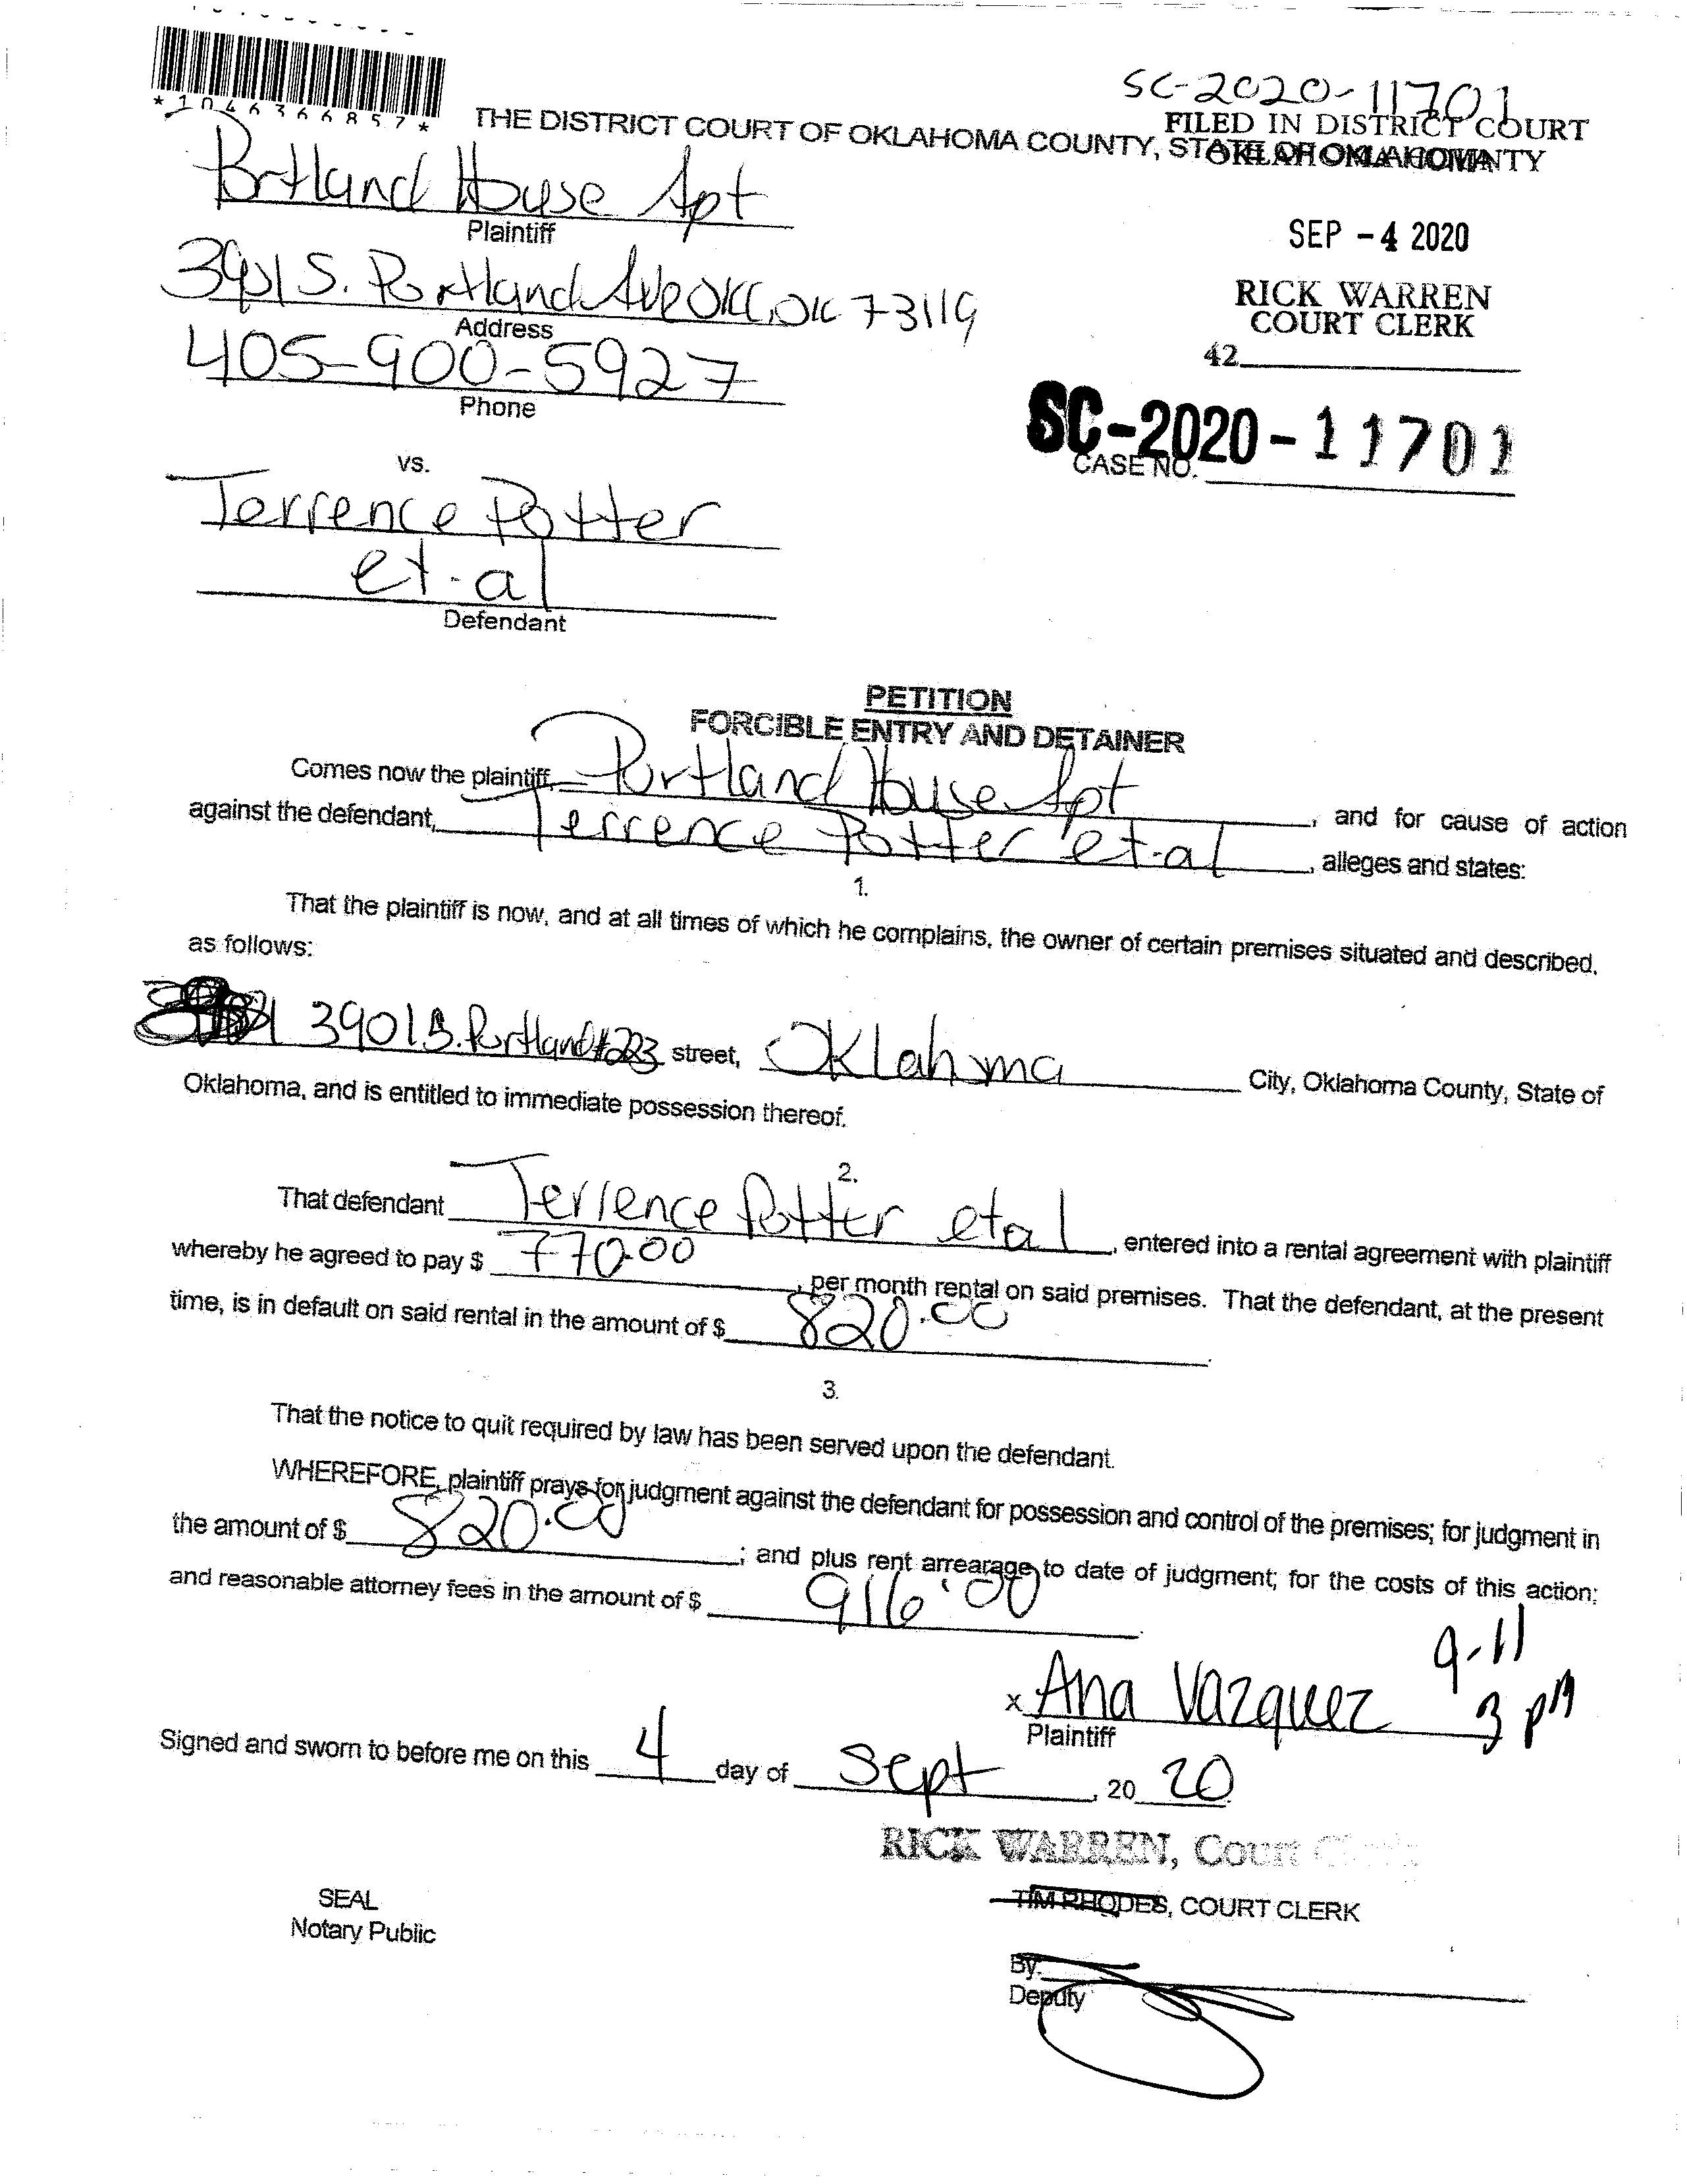 SC-2020-11701
*1046366857*
THE DISTRICT COURT OF OKLAHOMA COUNTY, STATE OF OKLAHOMA
FILED IN DISTRICT COURT
OKLAHOMA COUNTY
Portland House Apt
Plaintiff
SEP -4 2020
3901 S. Portland Ave OKC, OK 73119
Address
RICK WARREN
COURT CLERK
405-900-5927
Phone
42
SC-2020-11701
CASE NO.
vs.
Terrence Potter
et-al
Defendant
PETITION
FORCIBLE ENTRY AND DETAINER
Comes now the plaintiff, Portland House Apt, and for cause of action
against the defendant, Terrence Potter et-al, alleges and states:
1.
That the plaintiff is now, and at all times of which he complains, the owner of certain premises situated and described,
as follows:
3901 S. Portland #223 street, Oklahoma City, Oklahoma County, State of
Oklahoma, and is entitled to immediate possession thereof.
2.
That defendant Terrence Potter etal, entered into a rental agreement with plaintiff
whereby he agreed to pay $ 770.00, per month rental on said premises. That the defendant, at the present
time, is in default on said rental in the amount of $ 820.00.
3.
That the notice to quit required by law has been served upon the defendant.
WHEREFORE, plaintiff prays for judgment against the defendant for possession and control of the premises; for judgment in
the amount of $ 820.00; and plus rent arrearage to date of judgment; for the costs of this action;
and reasonable attorney fees in the amount of $ 916.00.
9-11
3 PM
x Ana Vazquez
Plaintiff
Signed and sworn to before me on this 4 day of Sept, 20 20.
RICK WARREN, Court Clerk
TIM RHODES, COURT CLERK
SEAL
Notary Public
By:
Deputy